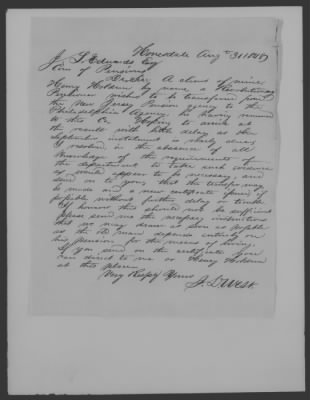 Honesdale Aug 31 1847
J. L. Edwards Esq
Com of Pensions
Dr Sir A client of mine
Henry by name, a Revolutionary
Pensioner wishes to be transferred from
the New Jersey Pension agency to the
Philadelphia Agency he having removed
to this Co. Hoping to arrive at
the result with little delay as the
September instalment is nearly due
I resolved in the absence of all
knowledge of the requirements of
the department to take such evidence
as would appear to be necessary, and
send on to you, that the transfer may
be made and a new certificate issued if
possible without further delay or trouble
If however this should not be sufficient
please send me the necessary instructions
that we may draw as soon as possible
as the old man depends entirely on
his pension, for the means of living.
If you send on the certificate you
can direct to me or Henry
at this place.
Very Resply Yours
J. D West